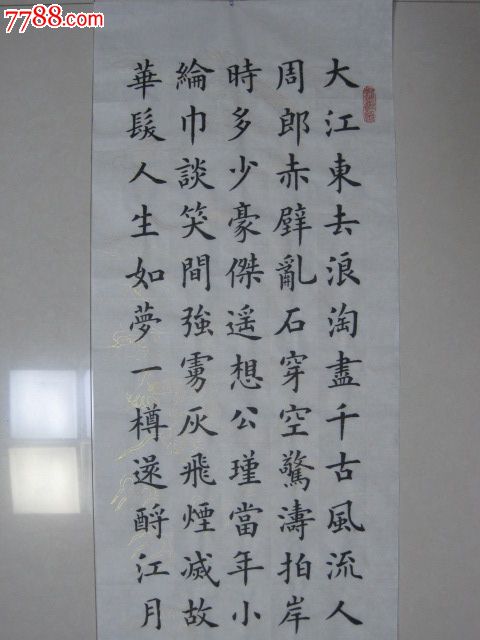 7788.com
大江東去浪淘盡千古風流人
周郎赤壁亂石穿空驚濤拍岸
時多少豪傑遥想公瑾當年小
綸巾談笑間強虜灰飛煙滅故
華髮人生如夢一樽還酹江月